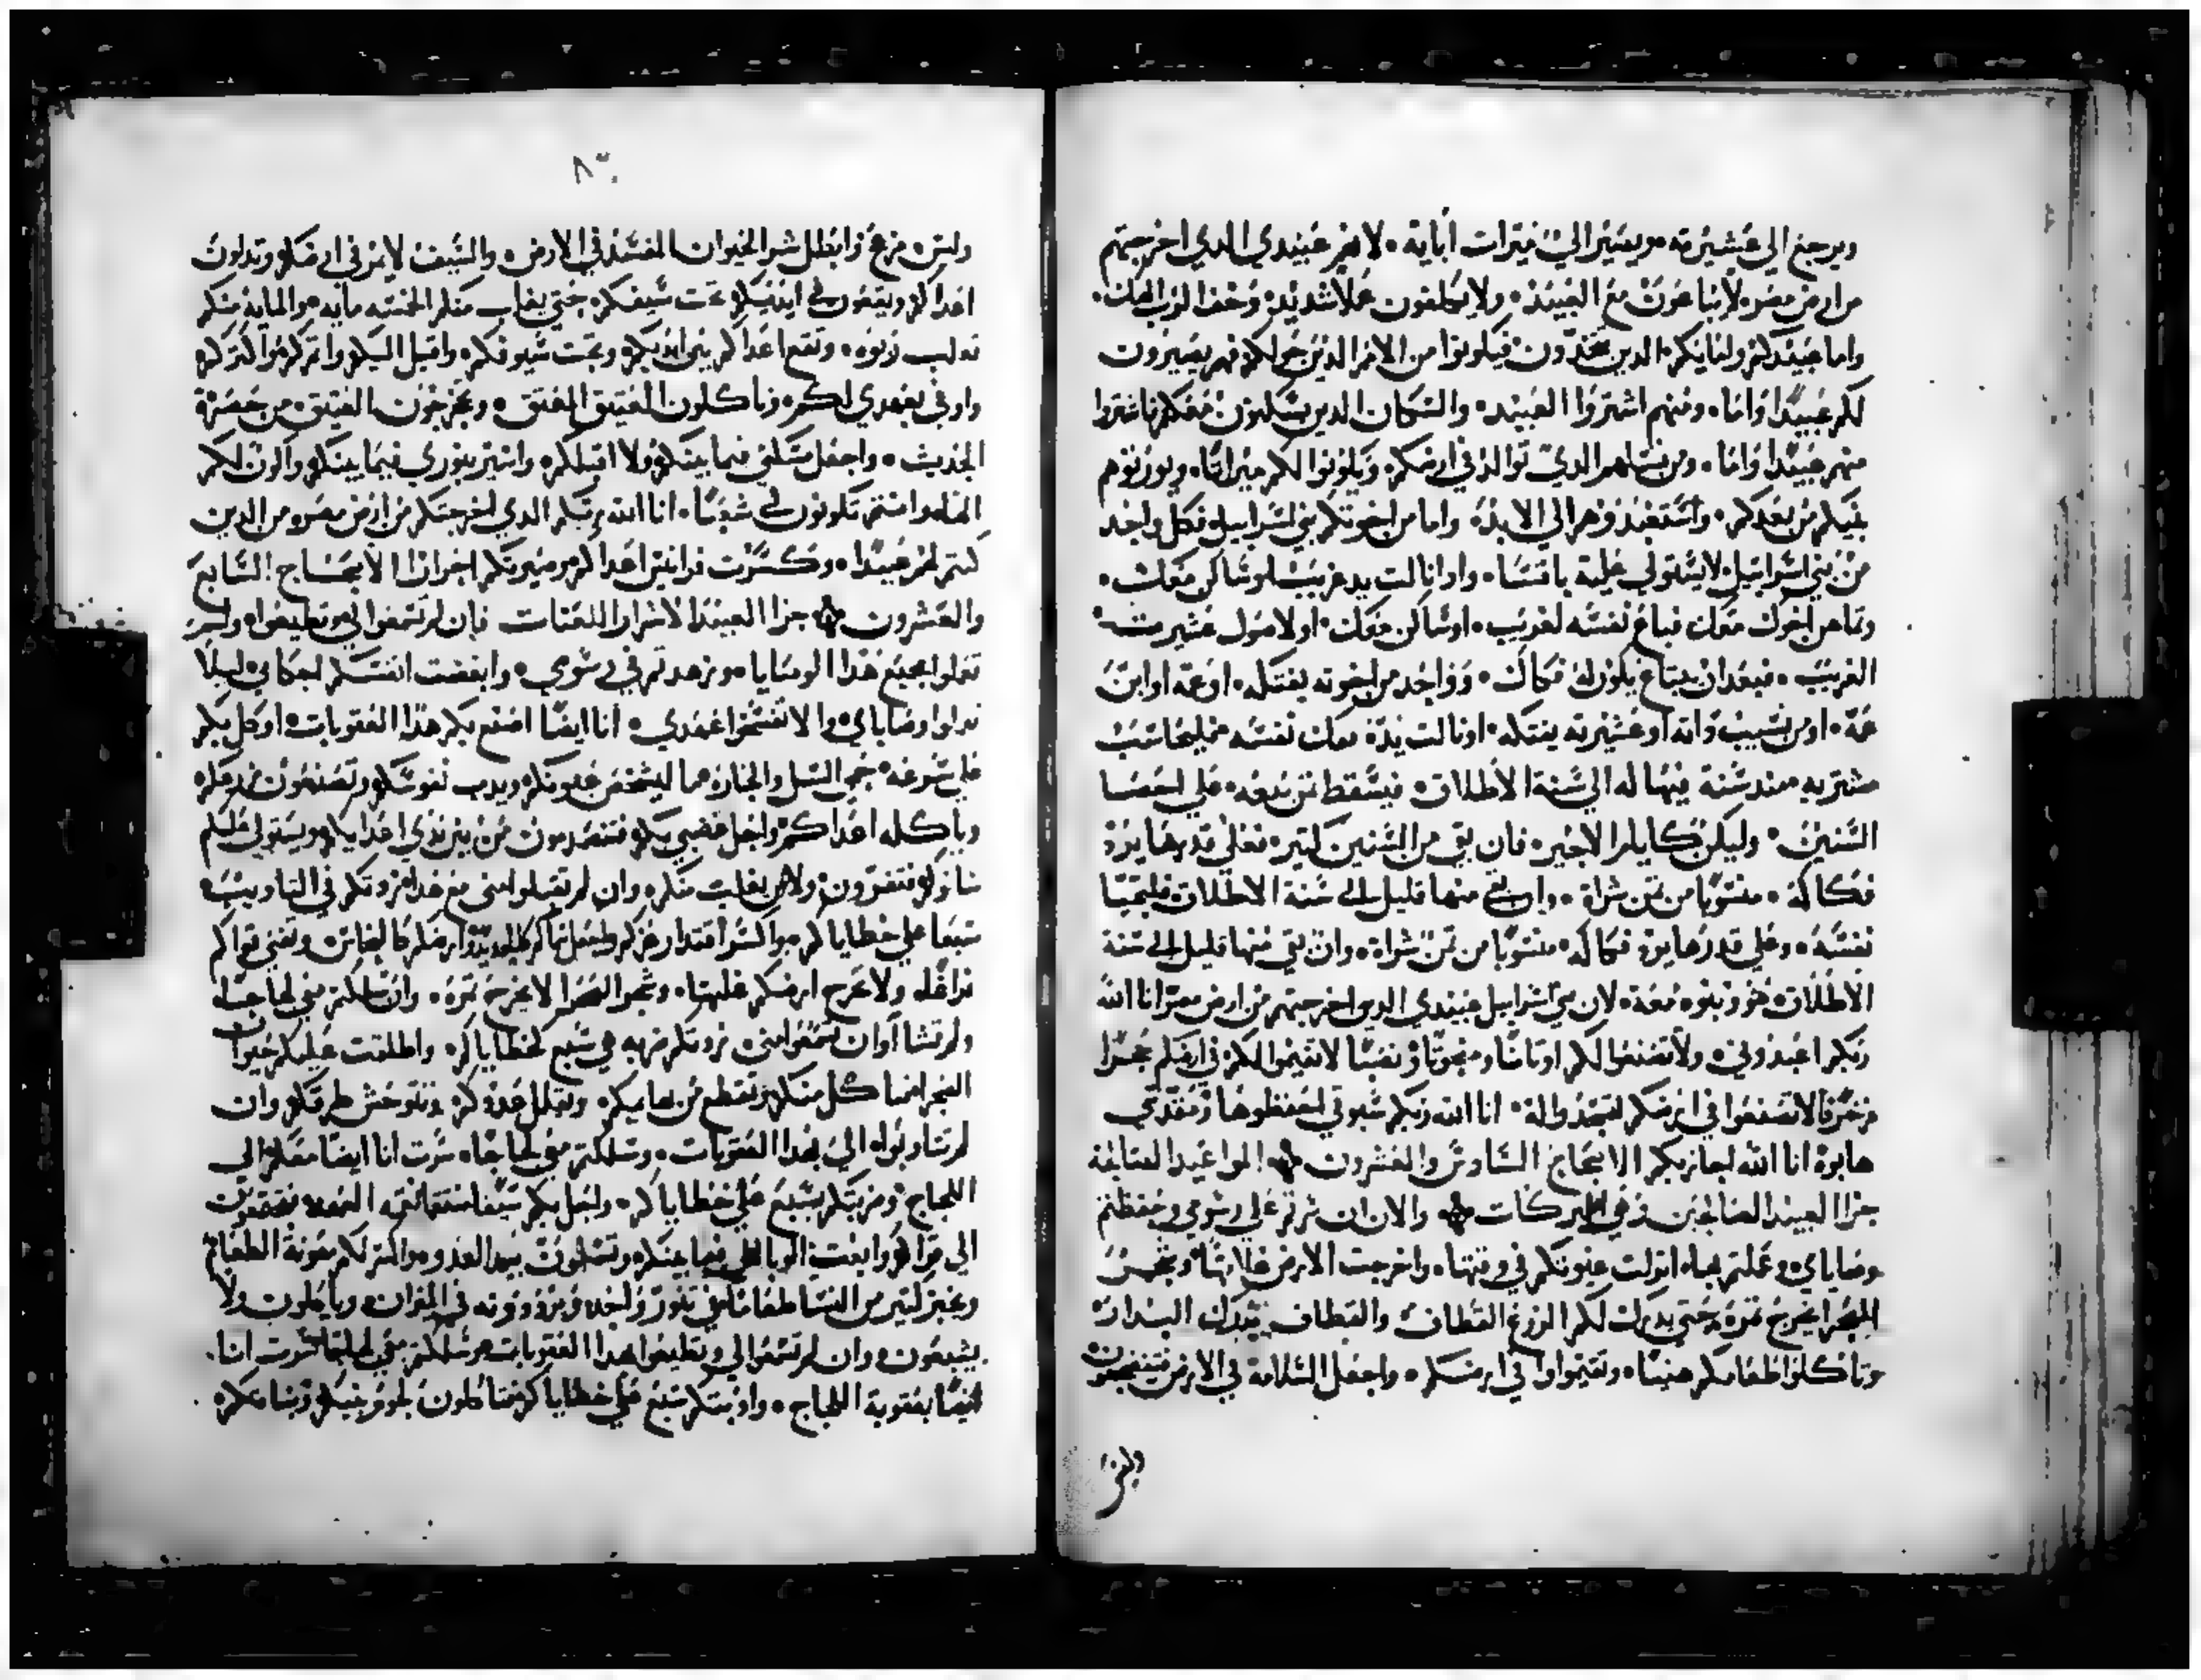 ويرجع الي عشيرته ويصير الي ميرات ابايه لانهم عبيدي الدي اخرجتهم
من ارض مصر لا يتباعون مع العبيد ولا يكلفون عملا شديد وخف الرب الهك
واما عبيدكم وامايكم الدين تتخدون فيكونوا من الامم الدين حولكم فهم يصيرون
لكم عبيدا واما ومنهم اشتروا العبيد والسكان الدين يسكنون معكم فاشتروا
منهم عبيدا واما ومن نسلهم الدي توالد في ارضكم ويكونوا لكم ميراتا ويورتوهم
بنيكم من بعدكم واستعبدوهم الي الابد واما من اخوتكم بني اسراييل فكل واحد
من بني اسراييل لا يستولي عليه باقتسا وادا نالت يد غريب او ساكن معك
وتماهن اخوك معك فباع نفسه لغريب او ساكن معك او لاصول عشير منه
الغريب فبعد ان يبتاع يكون له فكاك وواحد من اخوته يفتكه او عمه او ابن
عمه او من نسيب داته او عشيرته يفتكه او نالت يده فك نفسه فليحاسب
مشتريه مند سنة بيعها له الي سنة الاطلاق فيسقط تمن بيعه علي احصا
السنين وليكن كايام الاجير فان بقي من السنين كتير فعلي قدرها يرد
فكاكه منسوبا من تمن شراه وان بقي منها قليل الي سنة الاطلاق فليحسبا
نفسه وعلي قدرها يرد فكاكه منسوبا من تمن شراه وان بقي منها قليل الي سنة
الاطلاق هو وبنوه معه لان بني اسراييل عبيدي الدين اخرجتهم من ارض مصر انا الله
ربكم اعبدوني ولا تصنعوا لكم اوتانا ومنحوتا ونصبا لا تقيموا لكم في ارضكم حجرا
مزخرفا لا تصنعوا في ارضكم لتسجدوا له انا الله ربكم سبوتي احفظوها ومقدسي
هابوه انا الله اجازيكم الاصحاح السادس والعشرون المواعيد الصالحة
جزا العبيد الصالحين وفي البركات والان ان سرتم علي رسومي وحفظتم
وصاياي وعملتم بها انزلت غيوتكم في وقتها واخرجت الارض غلاتها وتحسن
الشجر يخرج تمره حتي يدرك لكم الزرع القطاف والقطاف يدرك البدار
وتاكلوا طعامكم هنيا وتقيموا في ارضكم واجعل السلامة في الارض فتضجعون
وليس
وليس مزعزعا وابطل شر الحيوان المفسد في الارض والسيف لا يمر في ارضكم وتدلون
اعداكم ويقعون في ايديكم تحت سيفكم حتي يغلب منكم الخمسه مايه والمايه منكم
تغلب ربوه وتقع اعداكم بين ايديكم وتحت سيوفكم واقبل اليكم واتمركم واكتركم
واوفي بعهدي لكم وتاكلون العتيق المعتق وتخرجون العتيق من حضرة
الحديت واجعل مسكني فيما بينكم ولا اقتلكم واسير بنوري فيما بينكم واكون لكم
الها وانتم تكونون لي شعبا انا الله ربكم الدي اخرجتكم من ارض مصر من الدين
كنتم لهم عبيدا وكسرت نير اعداكم وصيرتكم احرارا الاصحاح السابع
والعشرون جزا العبيد الاشرار اللعنات فان لم تسمعوا لي وتطيعوا ولم
تعلوا بجميع هدا الوصايا وزهدتم في رسومي وابغضت انفسكم احكامي ليلا
تعملوا وصاياي والا تفسخوا عهدي انا ايضا اصنع بكم هدا العقوبات اوكل بكم
علي سرعه حمي السل والحاره مما يشخص عيونكم ويديب نفوسكم وتصنعون زرعكم
وياكله اعداكم واحل غضبي بكم فتنصدمون من بين يدي اعدايكم ويستولي عليكم
شانيكم فتفرون ولا من يغلب منكم وان لم تقبلوا مني مع هدا زدتكم في التاديب
سبعا علي خطاياكم واكسر اقتدار عزكم واجعل سماكم كالحديد وارضكم كالنحاس وتفني قواكم
فراغله ولا تخرج ارضكم غلتها وشجر الصحرا لا يخرج تمره وان سلكتم مني لجاجا
ولم تشاوا ان تسمعوا مني زدتكم ضربه هي سبع كخطاياكم واطلقت عليكم حيوان
الفجر افنا كل منكم وتقطع من بهايمكم وتقلل عددكم وتتوحش طرقكم وان
لم تتادبوا لي بهدا العقوبات وسلكتم مني لجاجا سرت انا ايضا معكم الي
اللجاج وضربتكم بسبع علي خطاياكم واجعل بكم سيفا منتقما نقمه العهد فتجتمعون
الي قراكم وابعت الوبا فيما بينكم وتسلمون بيد العدو واكسر لكم معونة الطعام
وتخبز كتير من النسا طعامكم في تنور واحد ويردونه في الميزان وتاكلون ولا
يشبعون وان لم تسمعوا لي وتطيعوا هدا العقوبات وسلكتم مني لجاجا سرت انا
ايضا بعقوبة اللجاج وادبتكم سبع علي خطاياكم فتاكلون لحوم بنيكم وبناتكم